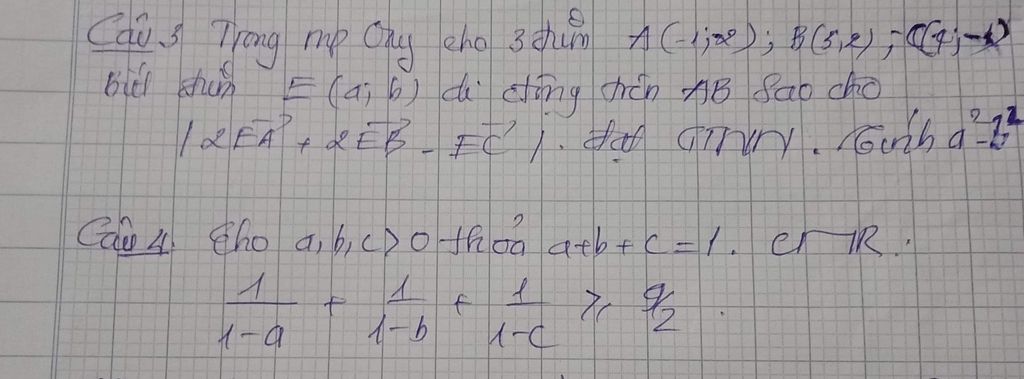 Câu 3 Trong mp Oxy cho 3 điểm A(-1;2); B(3;2); C(4;-1)
Biết điểm E(a;b) di động trên AB sao cho
|2EA + 2EB - EC|. đạt GTNN. Tính a²-b²
Câu 4. Cho a,b,c>0 thoả a+b+c=1. CMR.
1/1-a + 1/1-b + 1/1-c ≥ 9/2.